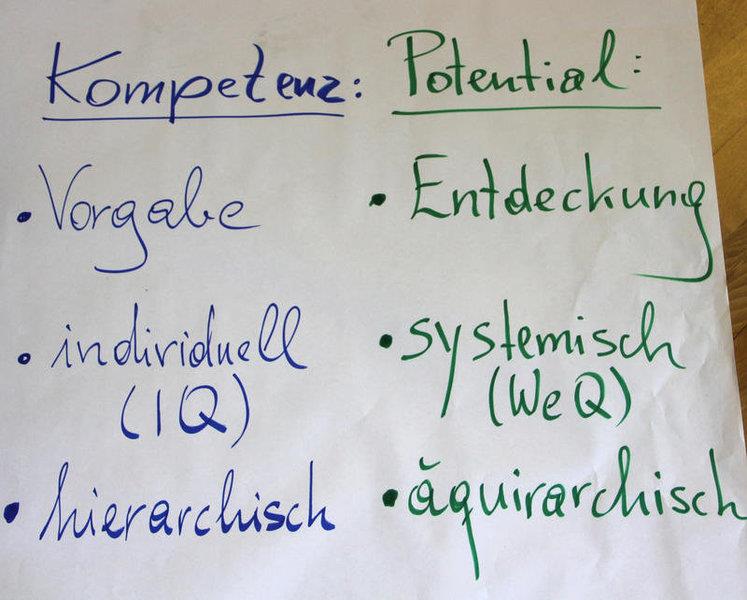 Kompetenz:
• Vorgabe
• individuell
(IQ)
• hierarchisch
Potential:
• Entdeckung
• systemisch
(WeQ)
• äquirarchisch